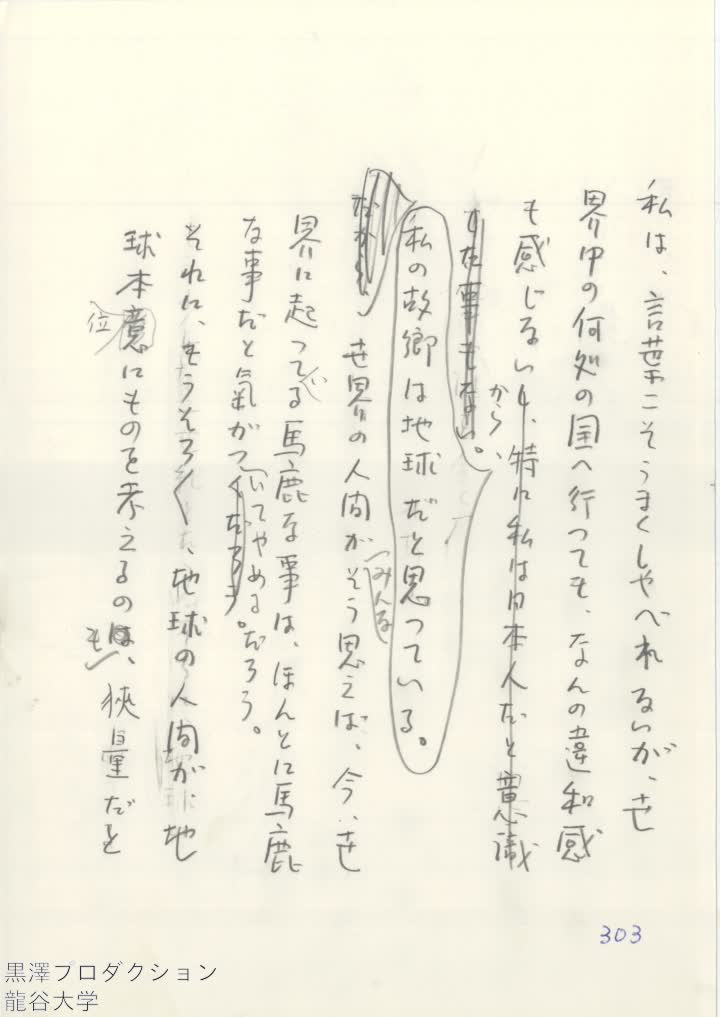 私は、言葉こそうまくしやべれないが、世
界中の何処の国へ行つても、なんの違和感
も感じないし、特に私は日本人だと意識
から、
した事もない。
私の故郷は地球だと思つている。
だから、世界の人間がそう思えば、今、世
みんな
界に起つてる馬鹿な事は、ほんとに馬鹿
い
な事だと氣がつくだろう。だろう。
いてやめる
それに、もうそろ〳〵、地球の人間が、地
球本意にものを考えるのは、狹量だと
位
も
303
黒澤プロダクション
龍谷大学